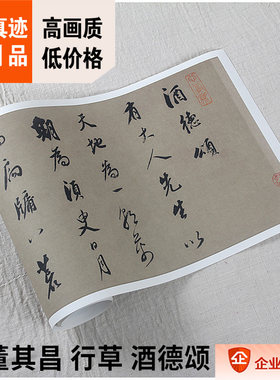 真迹
品
高画质
低价格
酒德頌
有大人先生以
天地為一朝萬
期為須臾日月
扃牖八荒
董其昌 行草 酒德颂
企 企业